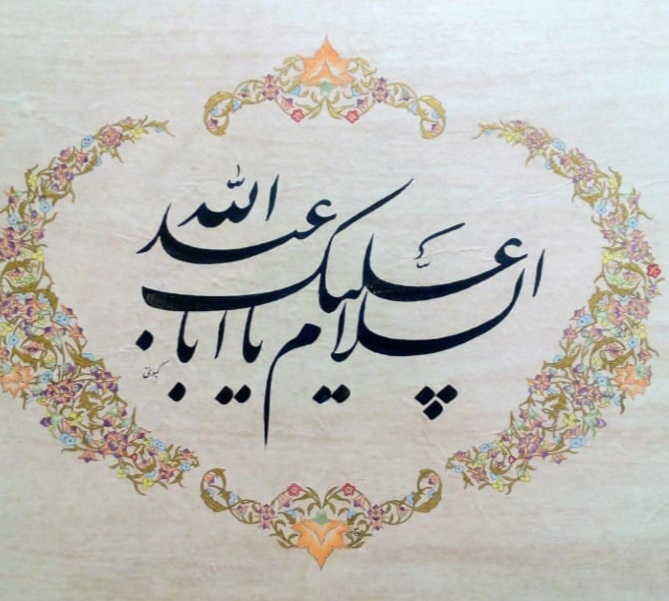 السّلام علیک یا ابا عبدالله